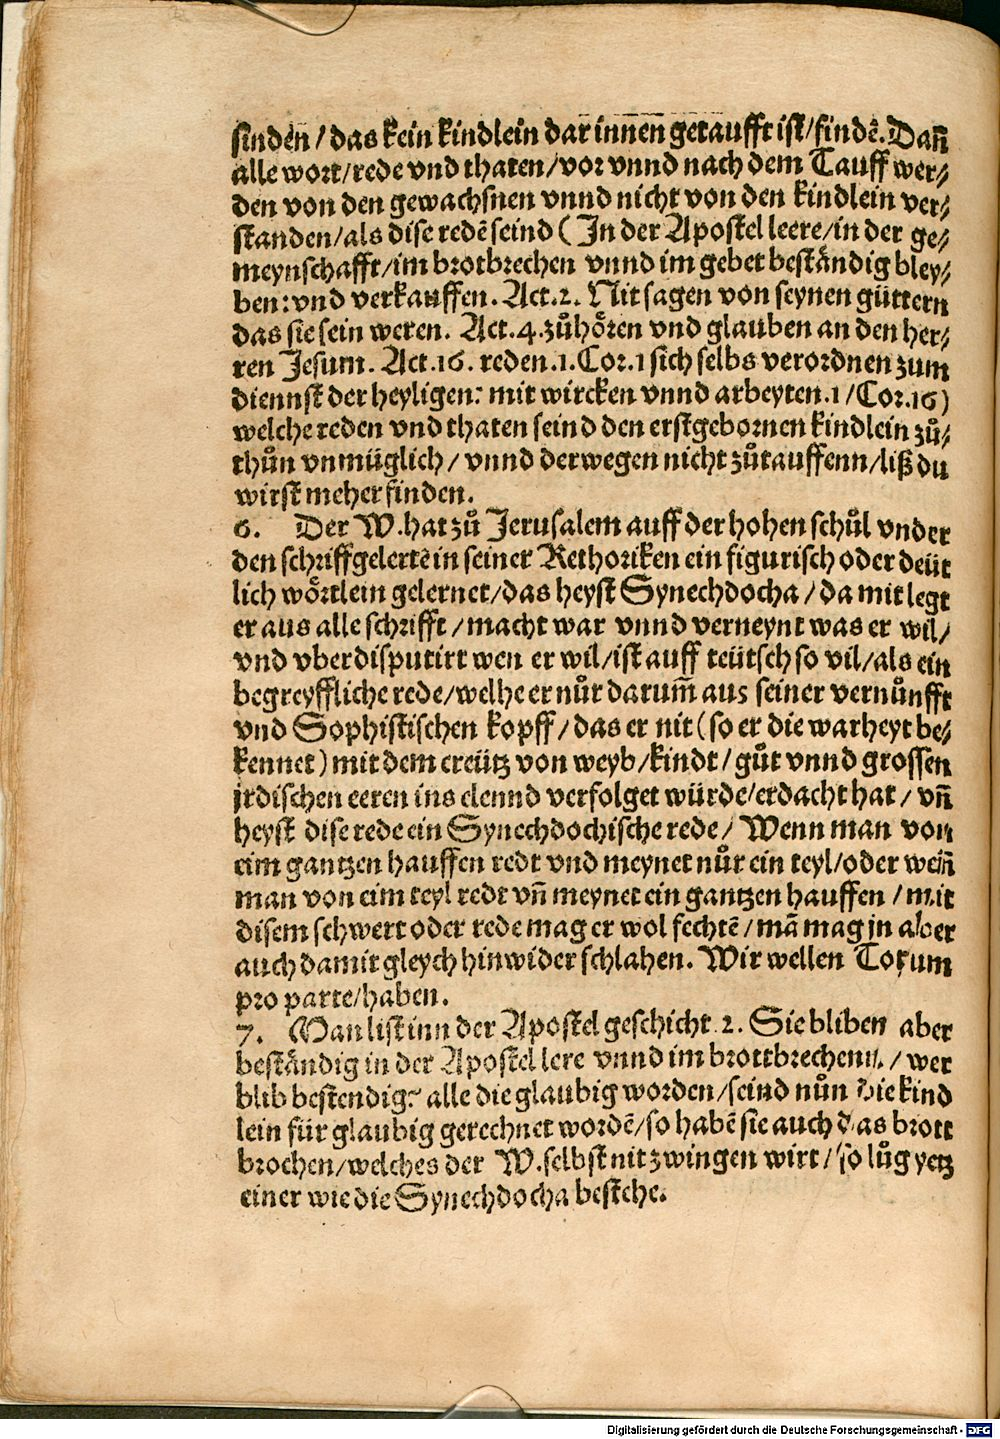 finden / das kein kindlein dar innen getaufft ist/findē. Dañ
alle wort/rede vnd thaten/vor vnnd nach dem Tauff wer⸗
den von den gewachsnen vnnd nicht von den kindlein ver⸗
standen/als dise redē seind ( In der Apostel leere/in der ge⸗
meynschafft/im brotbrechen vnnd im gebet beständig bley⸗
ben: vnd verkauffen. Act.2. Nit sagen von seynen güttern
das sie sein weren. Act.4. zůhören vnd glauben an den her⸗
ren Jesum. Act.16. reden.1.Cor.1 sich selbs verordnen zum
diennst der heyligen: mit wircken vnnd arbeyten.1/Cor.16)
welche reden vnd thaten seind den erstgebornen kindlein zů⸗
thůn vnmüglich/ vnnd derwegen nicht zůtauffenn/liß du
wirst meher finden.
6. Der W. hat zů Jerusalem auff der hohen schůl vnder
den schriffgelertē in seiner Rethoriken ein figurisch oder deüt
lich wörtlein gelernet/das heyst Synechdocha / da mit legt
er aus alle schrifft / macht war vnnd verneynt was er wil/
vnd vberdisputirt wen er wil/ist auff teütsch so vil/als ein
begreyffliche rede/welhe er nůr darum̄ aus seiner vernůnfft
vnd Sophistischen kopff / das er nit ( so er die warheyt be⸗
kennet ) mit dem creütz von weyb/kindt/ gůt vnnd grossen
jrdischen eeren ins elennd verfolget würde/erdacht hat / vñ
heyst dise rede ein Synechdochische rede/ Wenn man von
eim gantzen hauffen redt vnd meynet nůr ein teyl/oder weñ
man von eim teyl redt vñ meynet ein gantzen hauffen / mit
disem schwert oder rede mag er wol fechtē / mā mag jn aber
auch damit gleych hinwider schlahen. Wir wellen Totum
pro parte/haben.
7. Man list inn der Apostel geschicht. 2. Sie bliben aber
beständig in der Apostel lere vnnd im brottbrechenn. / wer
blib bestendig? alle die glaubig worden/seind nůn die kind
lein für glaubig gerechnet wordē/so habē sie auch das brott
brochen/welches der W. selbst nit zwingen wirt/ so lůg yetz
einer wie die Synechdocha bestehe.
Digitalisierung gefördert durch die Deutsche Forschungsgemeinschaft - DFG